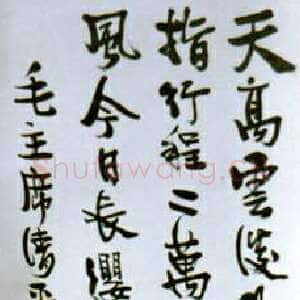 天高雲淡
指行程二萬
風今日長纓
毛主席清平
Shufawang.cn